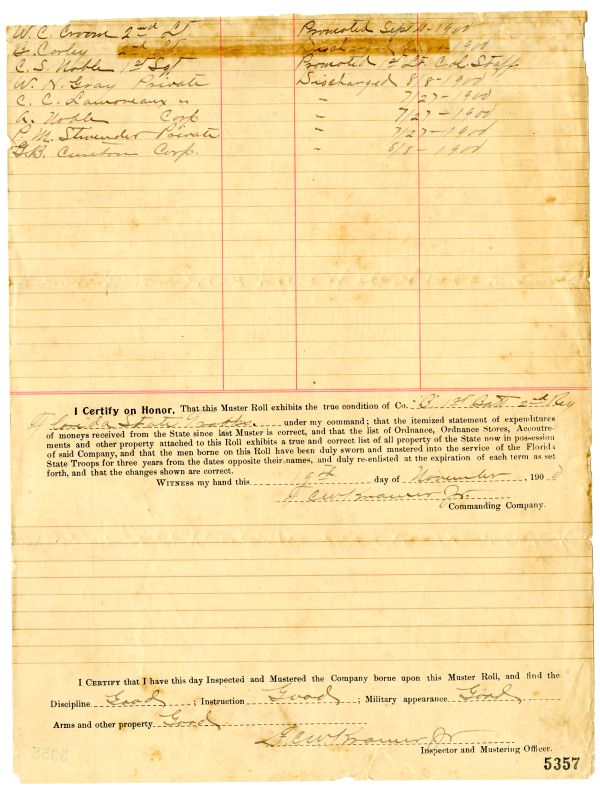 W. C. Croom 2nd Lt Promoted Sept 11-1900
Corley 2nd Lt. Discharged 1900
C. S. Noble 1st Sgt Promoted 1st Lt. Col. Staff
W. N. Gray Private Discharged 8/8-1900
C. C. Lamoreaux " " 7/27-1900
A. Noble Corp " 7/27-1900
P. M. Stivender Private " 7/27-1900
G.B. Cureton Corp. " 8/8-1900
I Certify on Honor, That this Muster Roll exhibits the true condition of Co. "B" 1st Batt 2nd Reg
Florida State Troops under my command; that the itemized statement of expenditures
of moneys received from the State since last Muster is correct, and that the list of Ordnance, Ordnance Stores, Accoutre-
ments and other property attached to this Roll exhibits a true and correct list of all property of the State now in possession
of said Company, and that the men borne on this Roll have been duly sworn and mustered into the service of the Florida
State Troops for three years from the dates opposite their names, and duly re-enlisted at the expiration of each term as set
forth, and that the changes shown are correct.
WITNESS my hand this day of November, 1900
Kramer Jr.
Commanding Company.
I CERTIFY that I have this day Inspected and Mustered the Company borne upon this Muster Roll, and find the
Discipline Good ; Instruction Good ; Military appearance Good
Arms and other property Good
Kramer Jr
Inspector and Mustering Officer.
5357